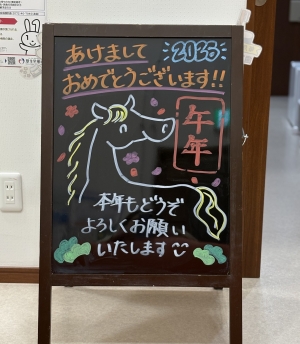 2026
あけまして
おめでとうございます!!
午年
本年もどうぞ
よろしくお願い
いたします